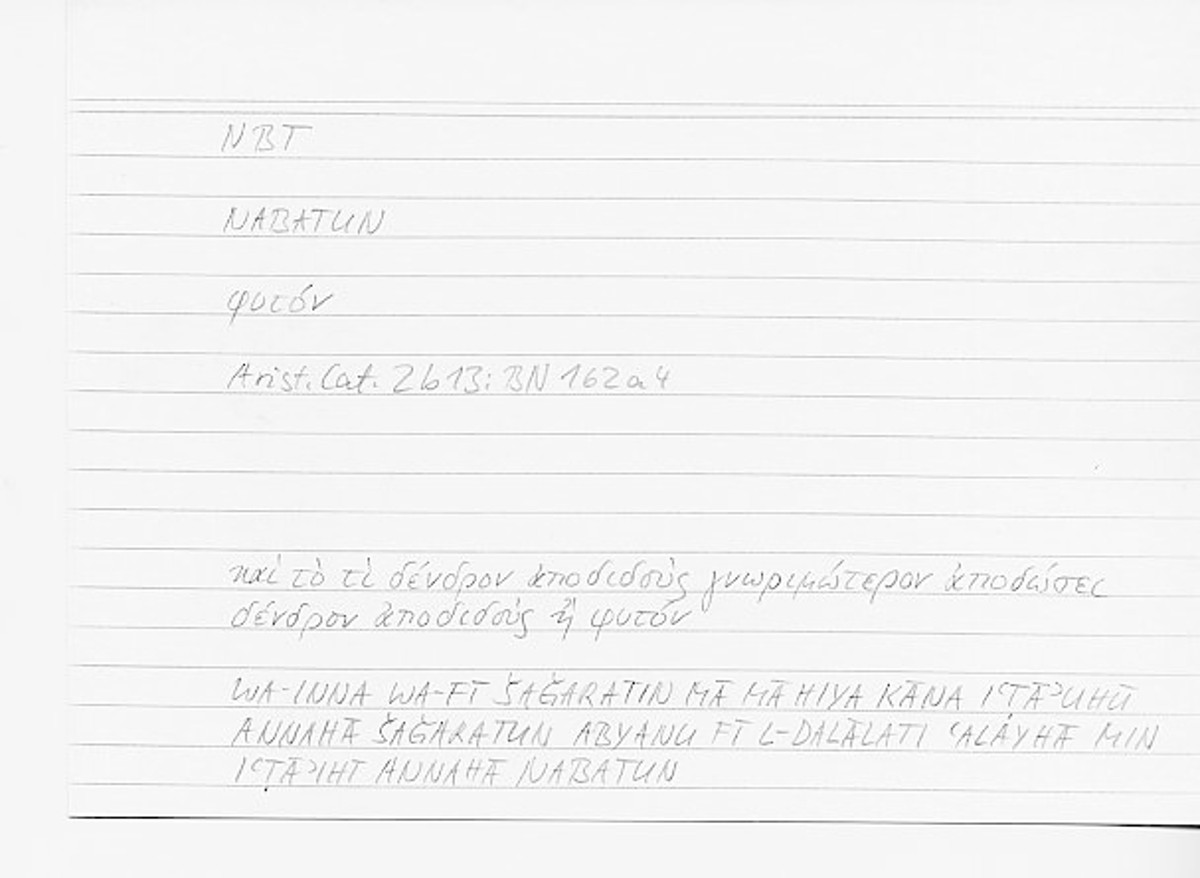 NBT
NABATUN
φυτόν
Arist. Cat. 2b13: BN 162a4
καὶ τὸ τὶ δένδρον ἀποδιδοὺς γνωριμώτερον ἀποδώσει
δένδρον ἀποδιδοὺς ἢ φυτόν
WA-INNA WA-FĪ ŠAǦARATIN MĀ MĀ HIYA KĀNA IʿṬĀʾUHŪ
ANNAHĀ ŠAǦARATUN ABYANU FĪ L-DALĀLATI ʿALAYHĀ MIN
IʿṬĀʾIHĪ ANNAHĀ NABATUN